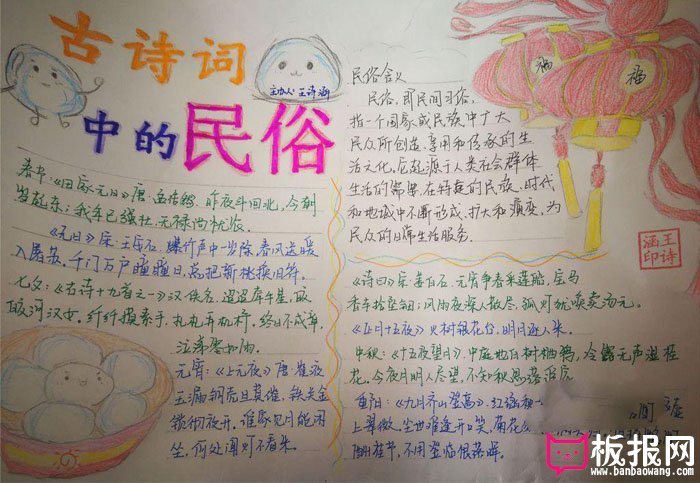 古诗词
中的民俗
主办人:王诗涵
春节:《田家元日》唐·孟浩然 昨夜斗回北,今朝
岁起东;我年已强壮,无禄尚忧农。
《元日》宋·王安石 爆竹声中一岁除,春风送暖
入屠苏。千门万户曈曈日,总把新桃换旧符。
七夕:《古诗十九首之一》汉·佚名 迢迢牵牛星,皎
皎河汉女。纤纤擢素手,札札弄机杼。终日不成章,
泣涕零如雨。
元宵:《上元夜》唐·崔液
玉漏铜壶且莫催,铁关金
锁彻夜开。谁家见月能闲
坐,何处闻灯不看来。
民俗含义
民俗,即民间习俗,
指一个国家或民族中广大
民众所创造、享用和传承的生
活文化,它起源于人类社会群体
生活的需要,在特定的民族、时代
和地域中不断形成、扩大和演变,为
民众的日常生活服务。
福
福
王诗
涵印
《诗曰》宋·姜白石 元宵争看采莲船,宝马
香车拾坠钿;风雨夜深人散尽,孤灯犹唤卖汤元。
《正月十五夜》火树银花合,明月逐人来。
中秋:《十五夜望月》中庭地白树栖鸦,冷露无声湿桂
花。今夜月明人尽望,不知秋思落谁家
重阳:《九月齐山登高》
上翠微。尘世难逢开口笑,菊花
酬佳节,不用登临恨落晖。
板报网
www.banbaowang.com